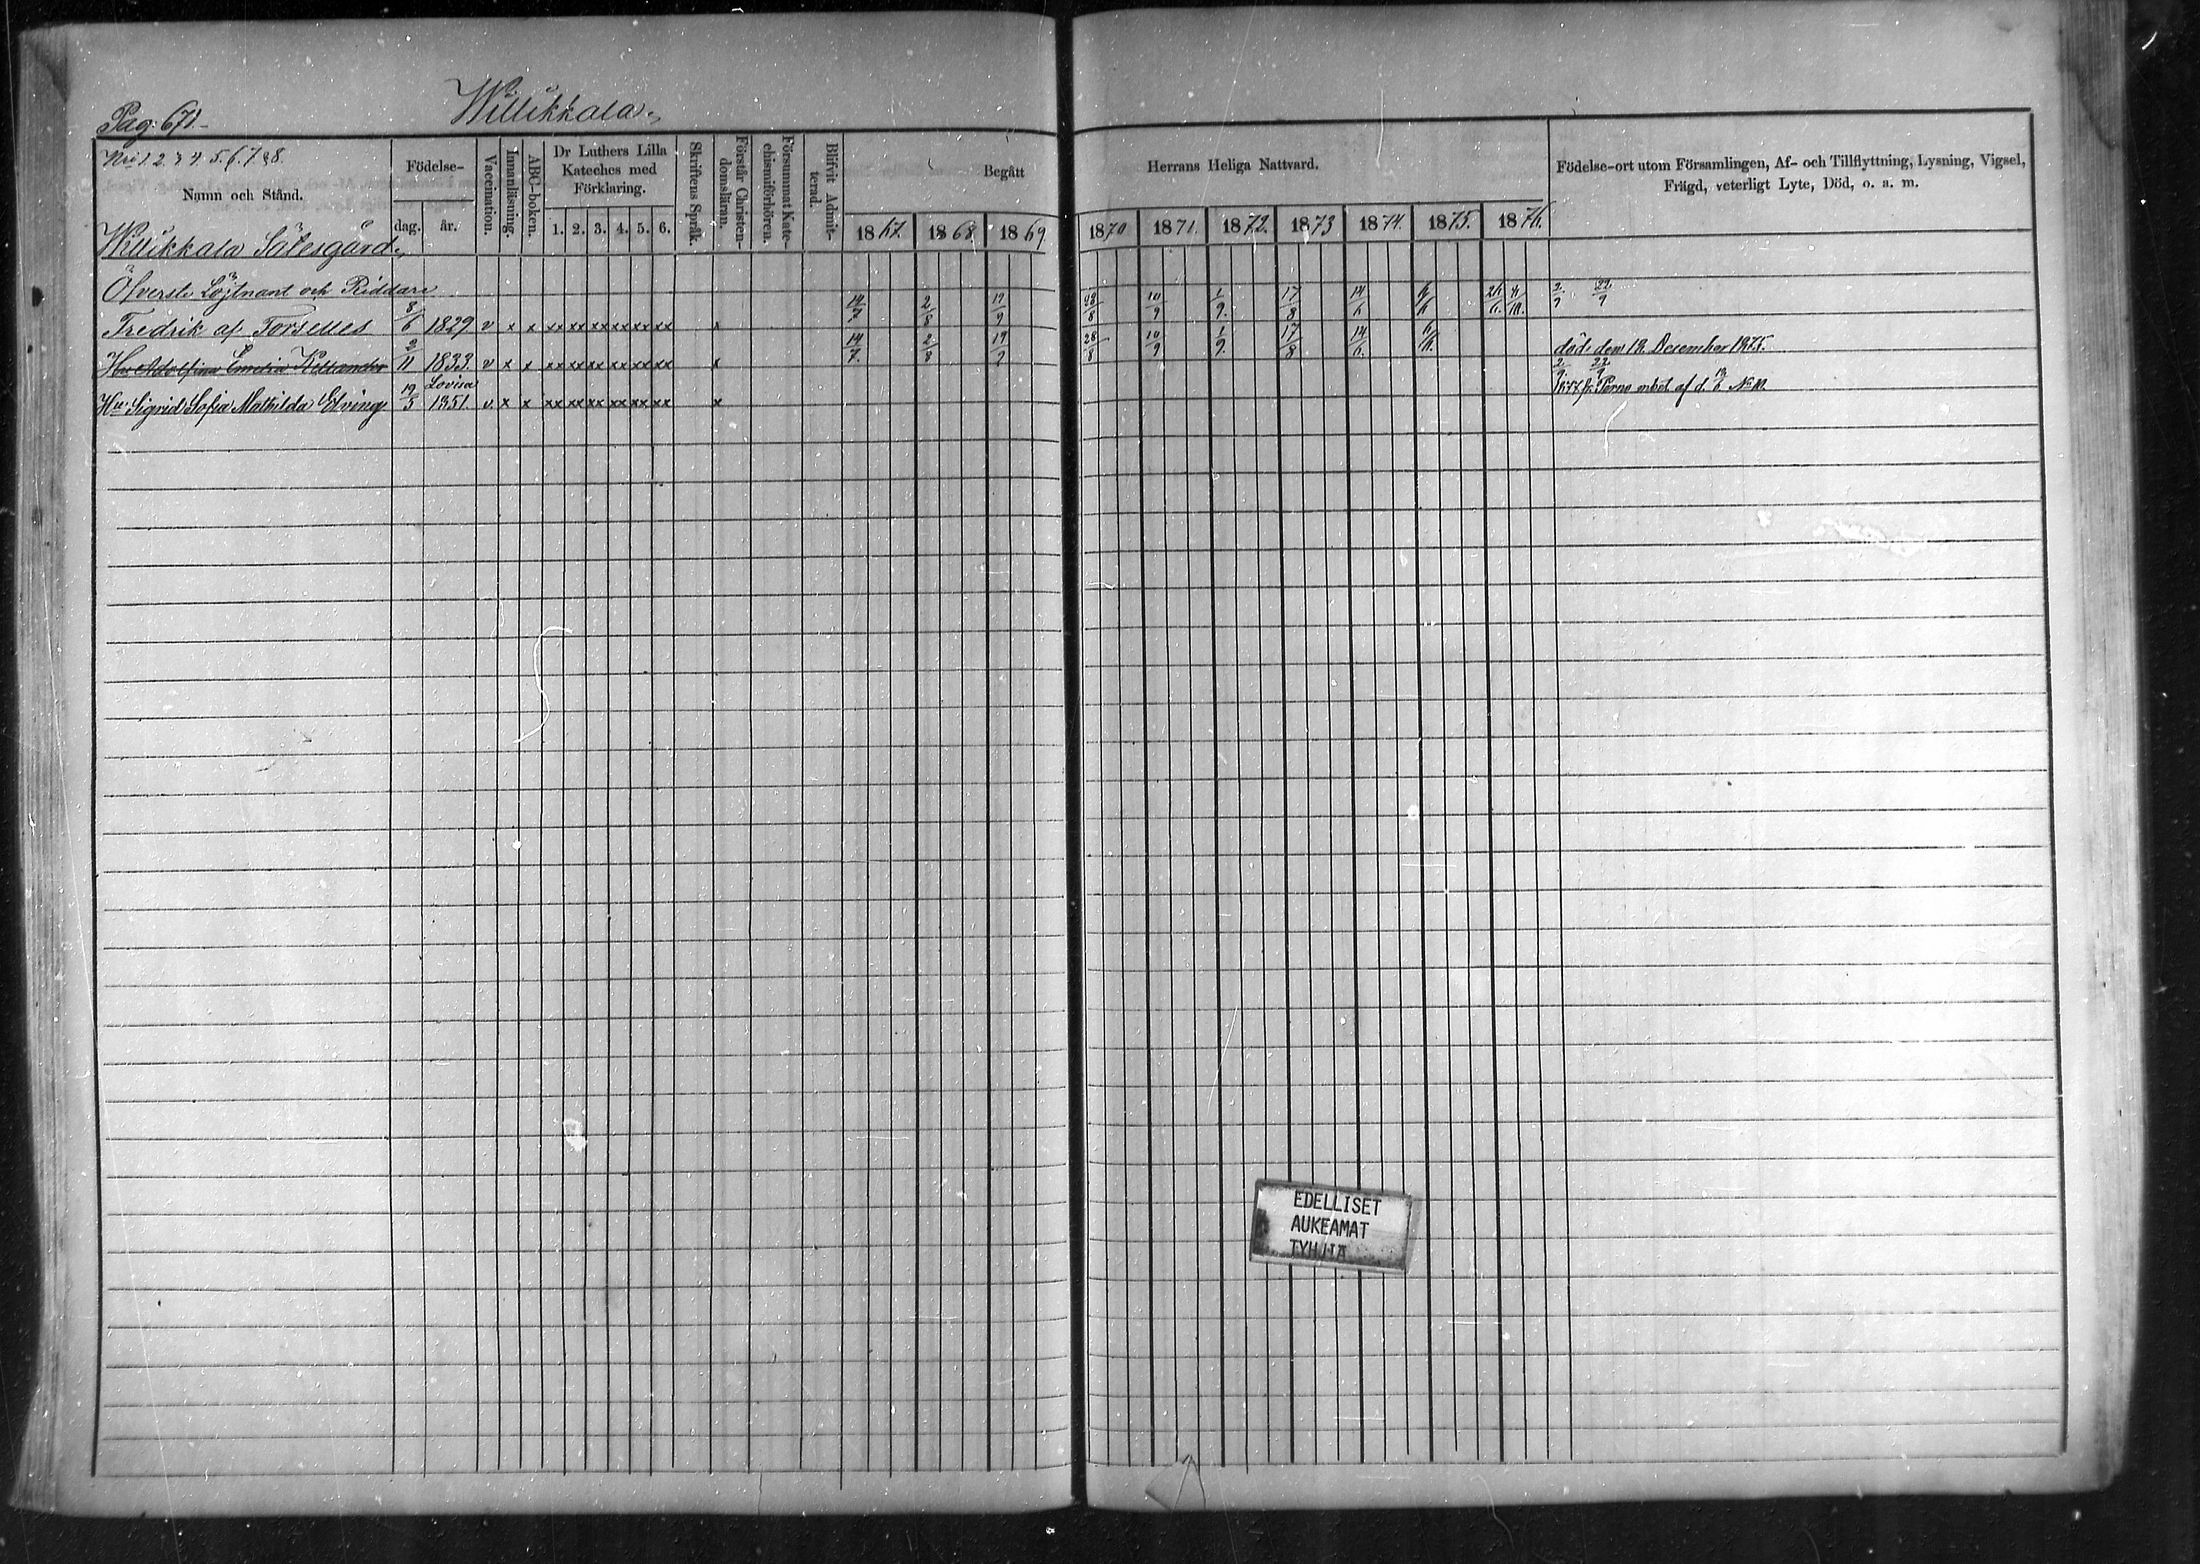 Pag. 671.
Willikkala.
Nris 1. 2. 3. 4. 5. 6. 7. & 8.
Namn och Stånd.
Födelse-
dag. år.
Vaccination.
Innanläsning.
ABC-boken.
Dr Luthers Lilla
Kateches med
Förklaring.
1. 2. 3. 4. 5. 6.
Skriftens Språk.
Förstår Christen-
domsläran.
Försummat Kate-
chismiförhören.
Blifvit Admit-
terad.
Begått
1867. 1868. 1869
Herrans Heliga Nattvard.
1870 1871 1872. 1873 1874. 1875. 1876.
Födelse-ort utom Församlingen, Af- och Tillflyttning, Lysning, Vigsel,
Frägd, veterligt Lyte, Död, o. a. m.
Willikkala Sätesgård.
Öfverste Löjtnant och Riddare
Fredrik af Forselles 8/6 1829 v x x xx xx xx xx xx xx x 14/7 2/8 19/9 28/8 10/9 1/9. 17/8 14/6 2/9 22/9
Hu Adolfina Emelia Kellander 2/11 1833. v x x xx xx xx xx xx xx x 14/7. 2/8 19/9 28/8 10/9 1/9. 17/8 14/6. död den 18. December 1875.
Lovisa
Hu Sigrid Sofia Mathilda Elving 19/5 1851. v. x x xx xx xx xx xx xx x 2/9. 22/9 1877 fr. Perno enbet af d. N: 10.
EDELLISET
AUKEAMAT
TYHJIÄ